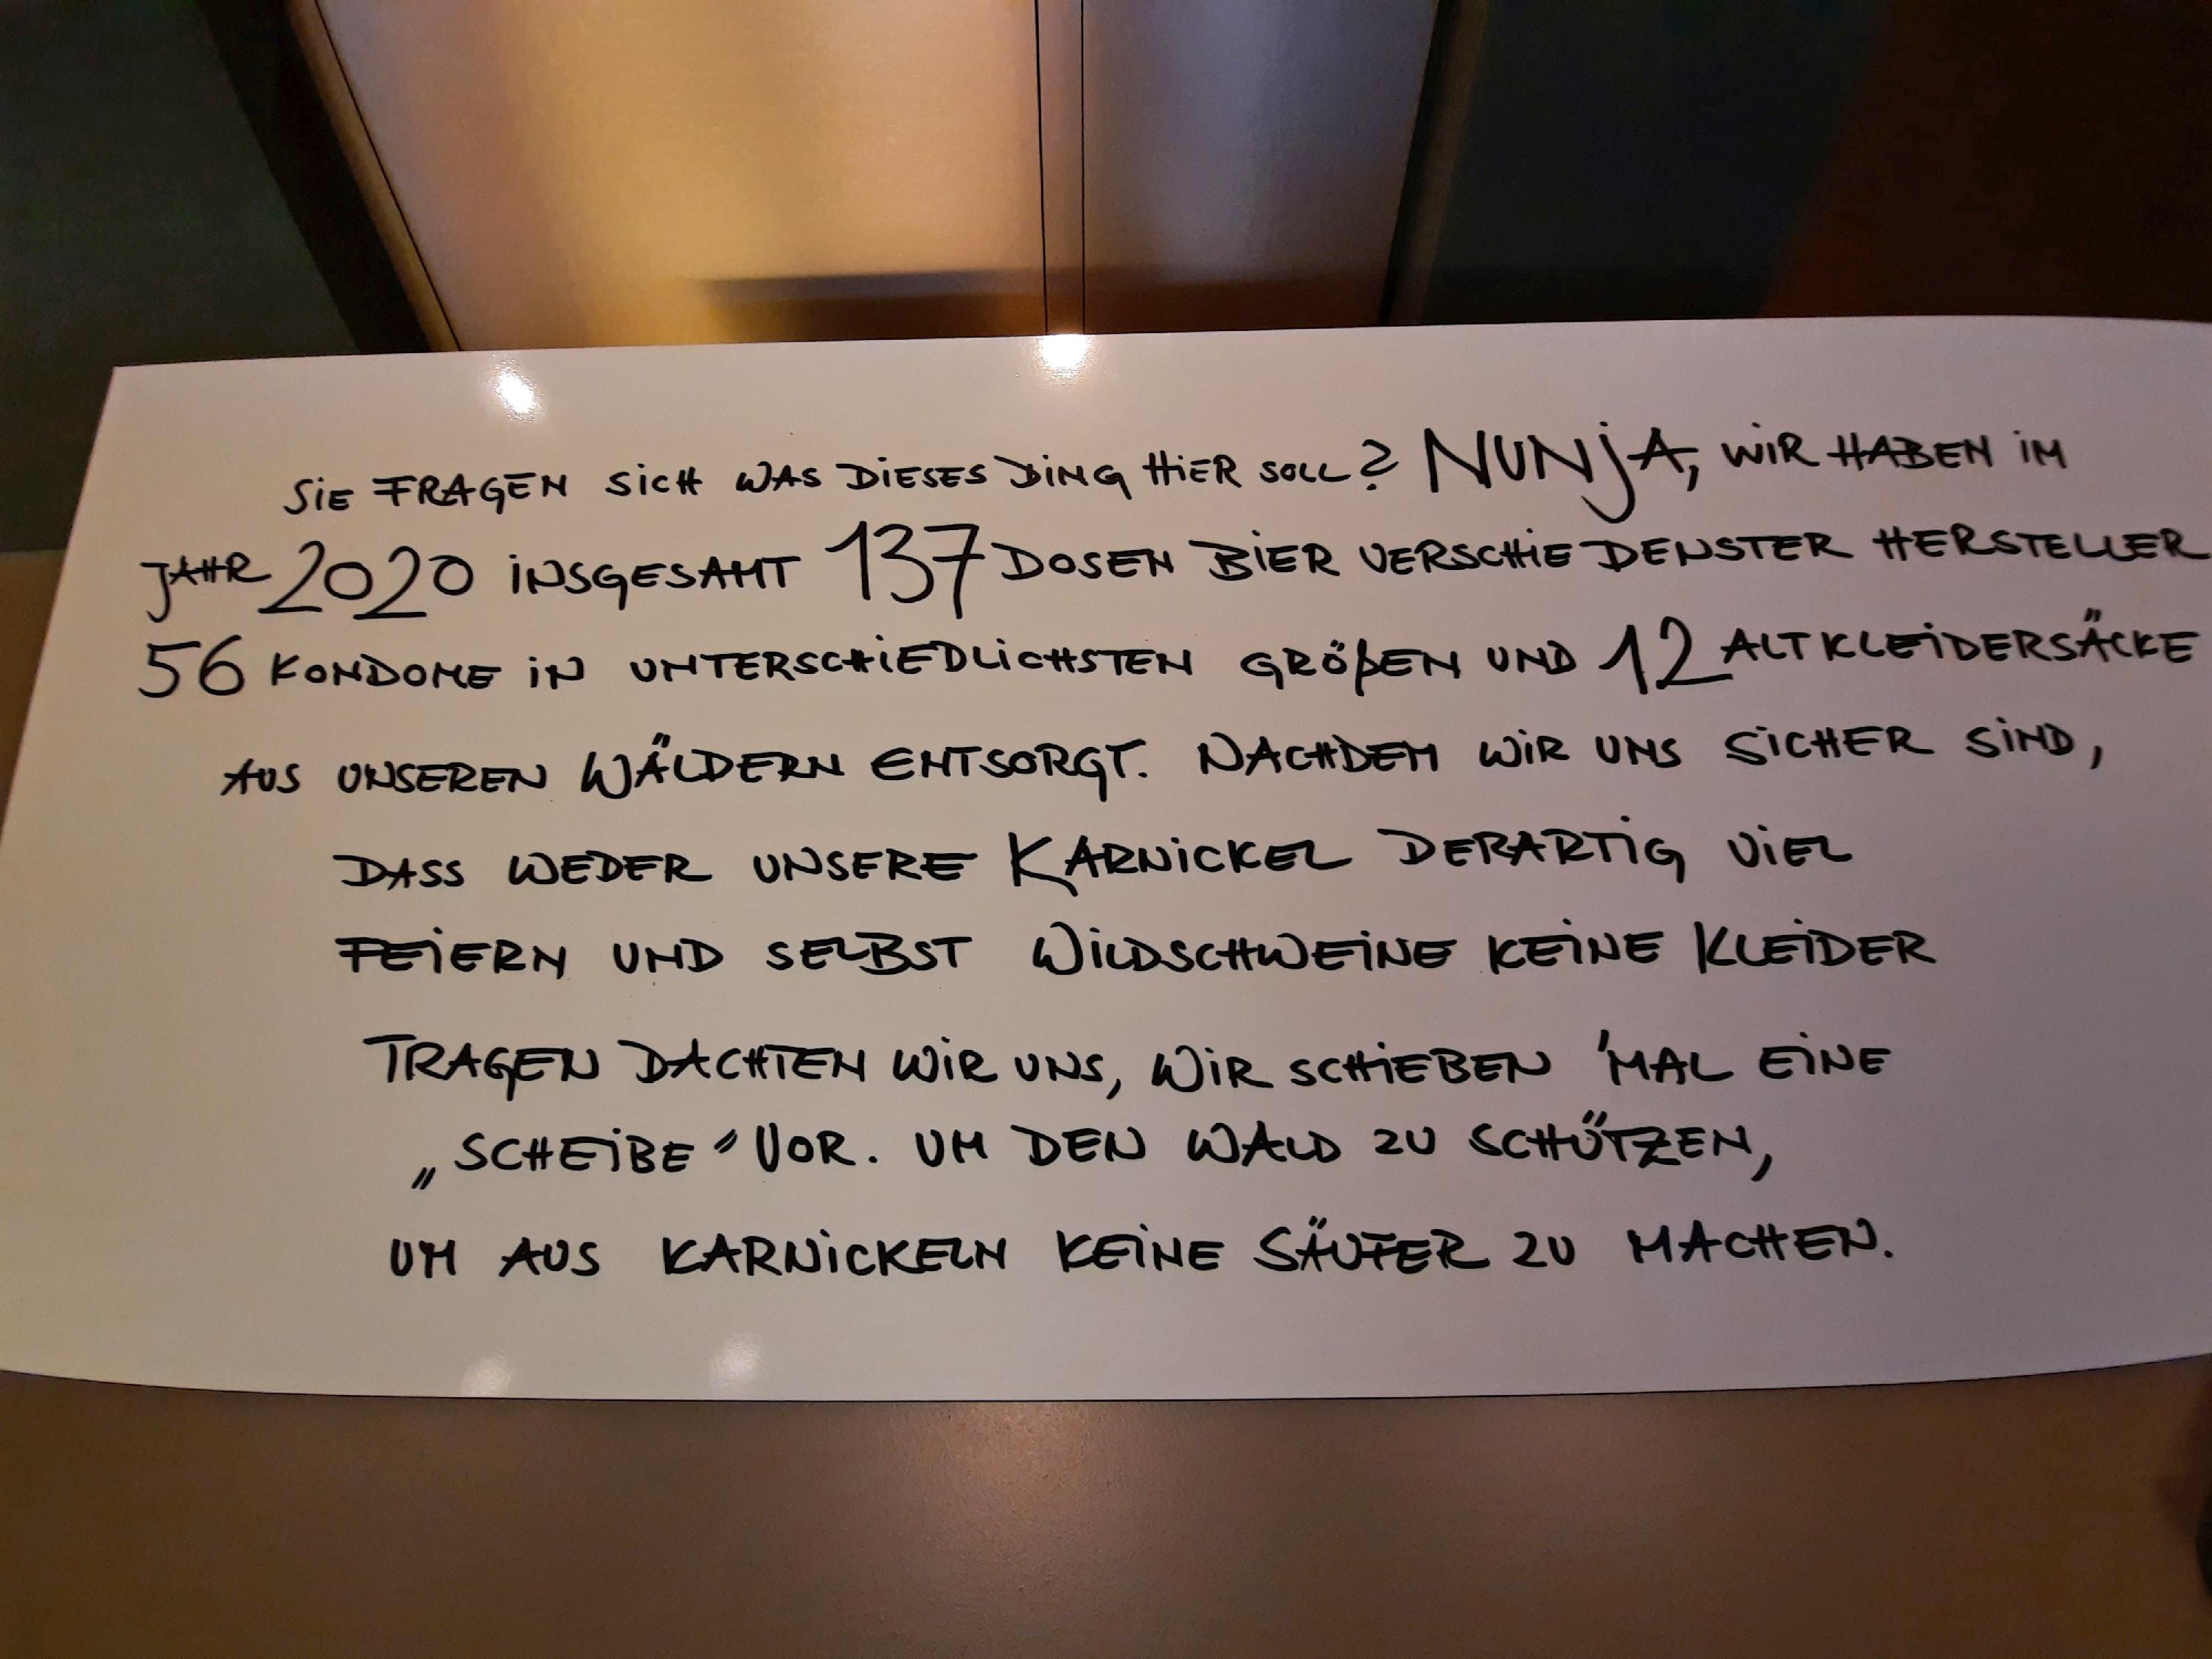 SiE FRAGEN SiCH WAS DiESES DiNG HiER SOLL? NUNjA, WiR HABEN iM
JAHR 2020 iNSGESAMT 137 DOSEN BiER VERSCHiEDENSTER HERSTELLER
56 KONDOME iN UNTERSCHiEDLiCHSTEN GRÖßEN UND 12 ALTKLEiDERSÄCKE
AUS UNSEREN WÄLDERN ENTSORGT. NACHDEM WiR UNS SiCHER SiND,
DASS WEDER UNSERE KARNiCKEL DERARTiG ViEL
FEiERN UND SELBST WiLDSCHWEiNE KEiNE KLEiDER
TRAGEN DACHTEN WiR UNS, WiR SCHiEBEN 'MAL EiNE
„SCHEiBE" VOR. UM DEN WALD ZU SCHÜTZEN,
UM AUS KARNiCKELN KEiNE SÄUFER ZU MACHEN.